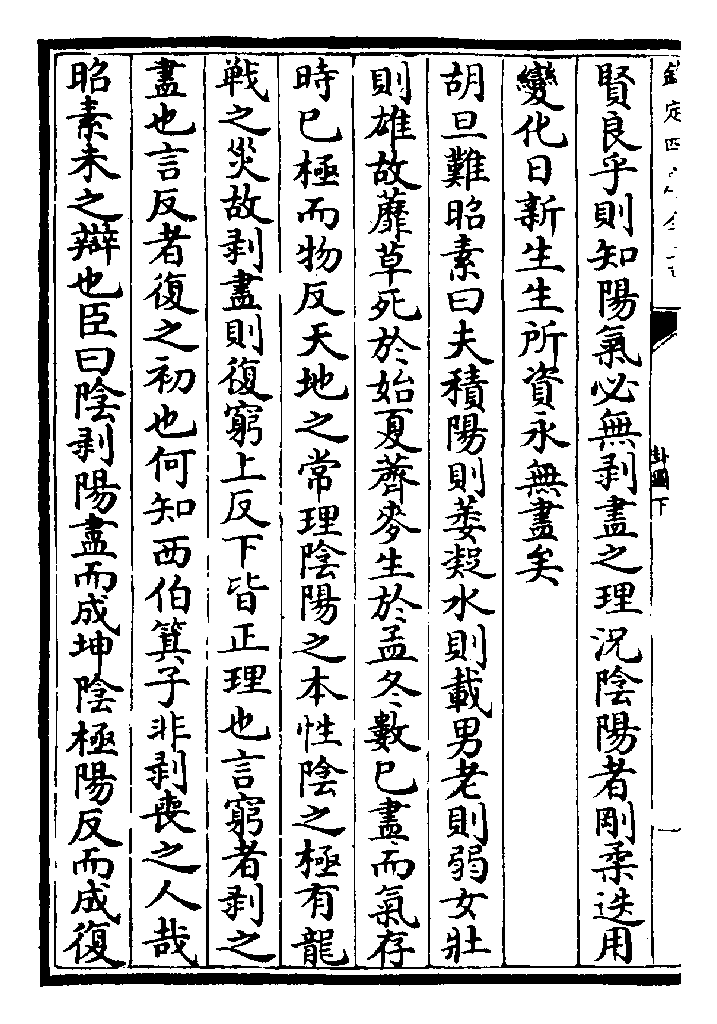 欽定四庫全書
卦圖下
賢良乎則知陽氣必無剥盡之理況陰陽者剛柔迭用
變化日新生生所資永無盡矣
胡旦難昭素曰夫積陽則萎凝水則載男老則弱女壯
則雄故蘼草死於始夏薺麥生於孟冬數已盡而氣存
時已極而物反天地之常理陰陽之本性陰之極有龍
戰之災故剥盡則復窮上反下皆正理也言窮者剥之
盡也言反者復之初也何知西伯箕子非剥喪之人哉
昭素未之辯也臣曰陰剥陽盡而成坤陰極陽反而成復